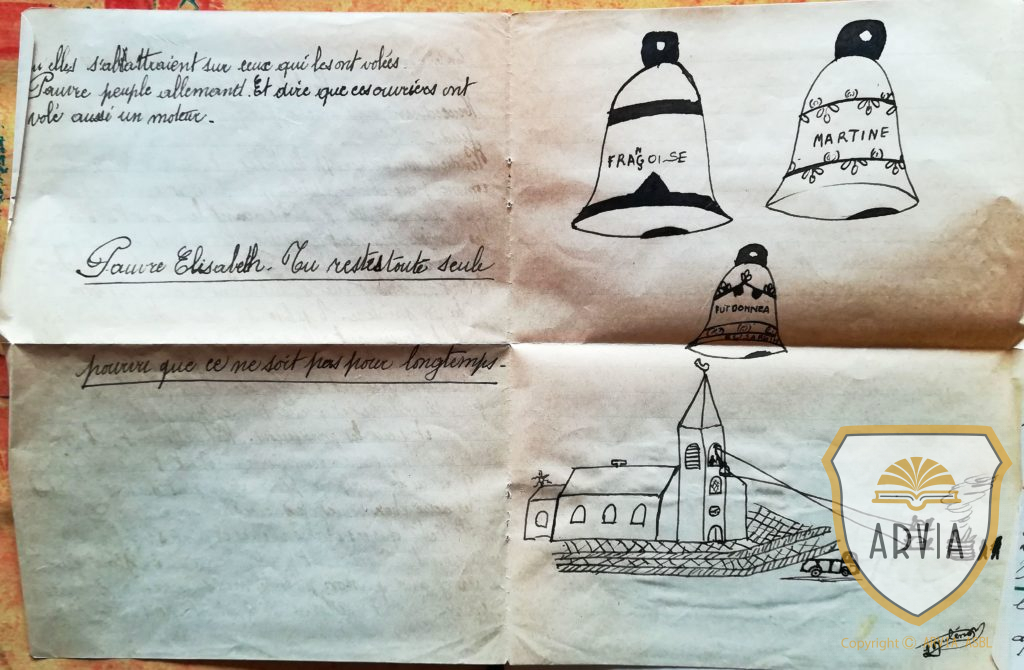 elles s'abattraient sur ceux qui les ont volées.
Pauvre peuple allemand. Et dire que ces ouvriers ont
volé aussi un moteur.
Pauvre Elisabeth. Tu restes toute seule
pourvu que ce ne soit pas pour longtemps.
FRANÇOISE
MARTINE
FUT DONNEA
ELISABETH
ARVIA
Copyright ©